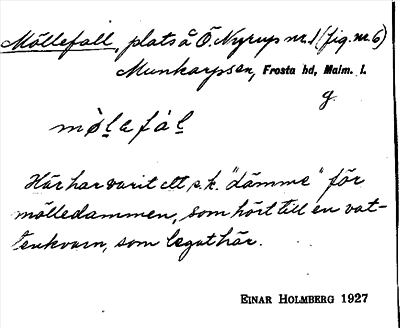 Möllefall, plats å Ö. Nyrup nr. 1 (fig. nr. 6)
Munkarpssn, Frosta hd, Malm. l.
g.
mø̀l̠a fál̠
Här har varit ett s.k. "dämme" för
mölledammen, som hört till en vat-
tenkvarn, som legat här.
EINAR HOLMBERG 1927